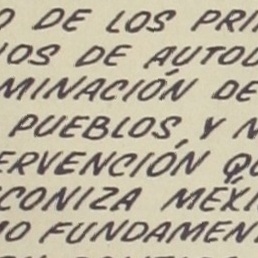 O DE LOS PRI
IOS DE AUTOD
MINACIÓN DE
PUEBLOS, Y N
ERVENCIÓN QU
CONIZA MÉXI
MO FUNDAMEN